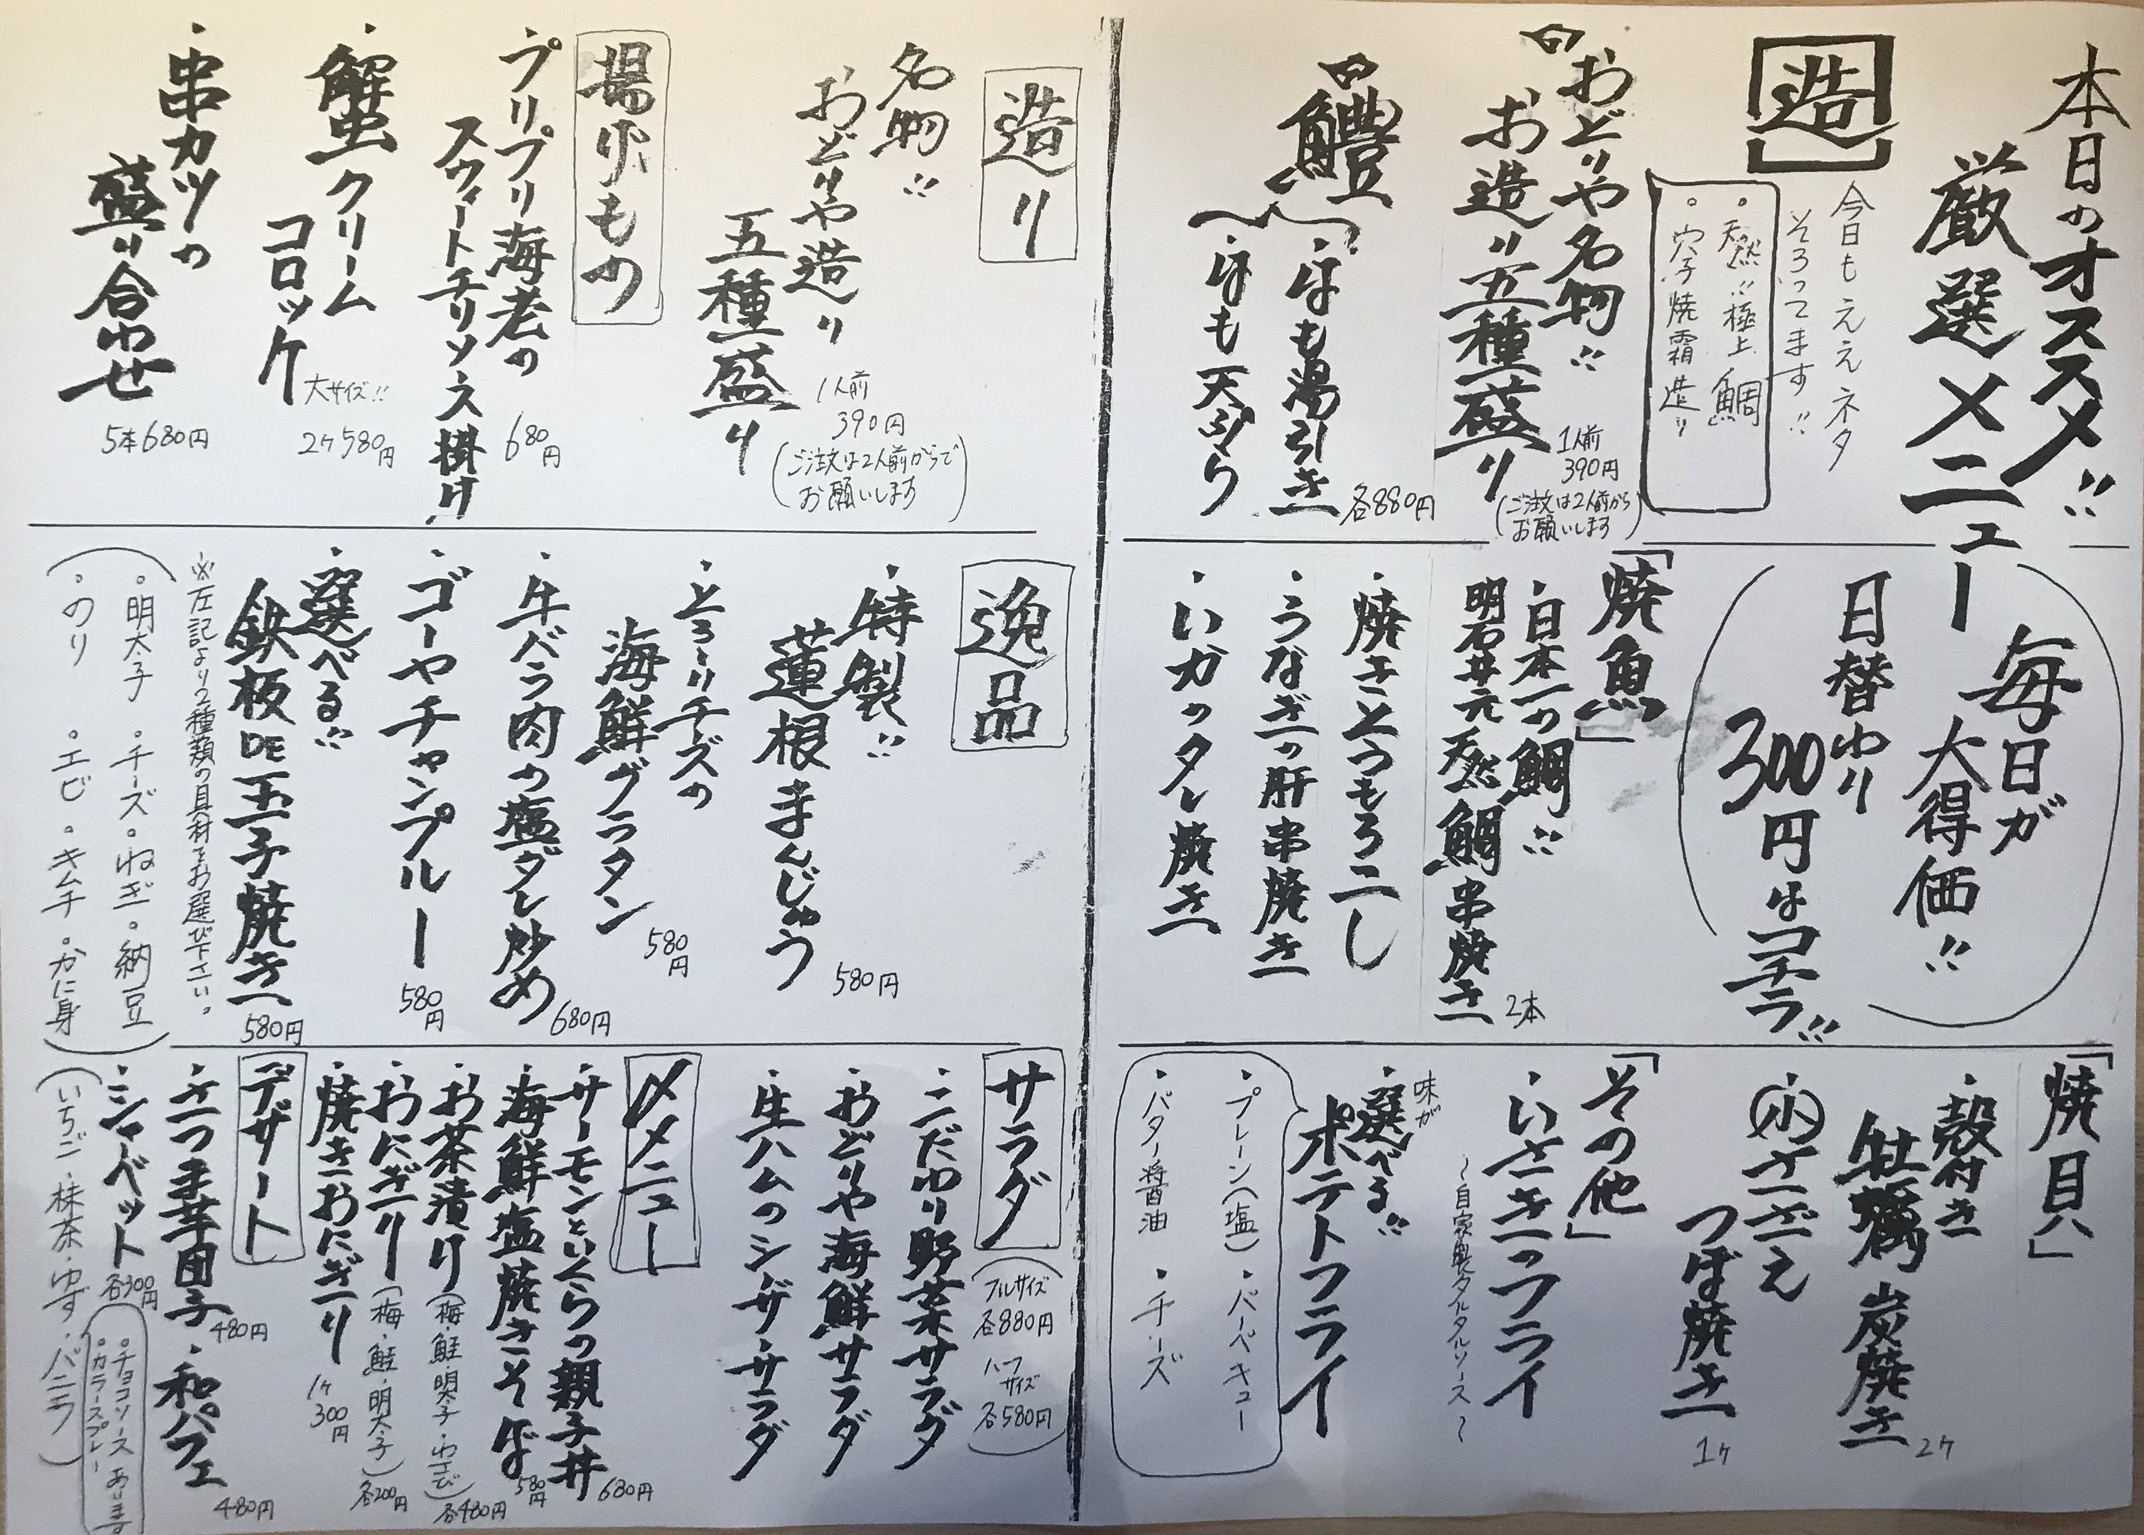 本日のオススメ!!
厳選メニュー
造
今日もええネタ
そろってます!!
・天然!!極上鯛
・穴子焼霜造り
・おどりや名物!!
お造り五種盛り
1人前
390円
(ご注文は2人前から
お願いします)
・鱧
・はも湯引き
・はも天ぷら
各880円
毎日が
大得価!!
日替わり
300円はコチラ!!
「焼魚」
・日本一の鯛!!
明石井元天然鯛串焼き
2本
・焼きとうもろこし
・うなぎの肝串焼き
・いかのタレ焼き
「焼貝」
・殻付き
牡蠣炭焼き
2ケ
・小さざえ
つぼ焼き
1ケ
「その他」
・いさきのフライ
〜自家製タルタルソース〜
・味が
選べる!!
ポテトフライ
・プレーン(塩)・バーベキュー
・バター醤油・チーズ
造り
・名物!!
おどりや造り
五種盛り
1人前
390円
(ご注文は2人前からで
お願いします)
揚げもの
・プリプリ海老の
スウィートチリソース掛け
680円
・蟹クリーム
コロッケ
大サイズ!!
2ケ580円
・串カツの
盛り合わせ
5本680円
逸品
・特製!!
蓮根まんじゅう
580円
・とろ〜りチーズの
海鮮グラタン
580円
・牛バラ肉の塩ダレ炒め
680円
・ゴーヤチャンプルー
580円
・選べる!!
鉄板DE玉子焼き
580円
※左記より2種類の具材をお選び下さい。
・明太子・チーズ・ねぎ・納豆
・のり・エビ・キムチ・かに身
サラダ
フルサイズ
各880円
ハーフ
サイズ
各580円
・こだわり野菜サラダ
・おどりや海鮮サラダ
・生ハムのシーザーサラダ
〆メニュー
・サーモンといくらの親子丼
680円
・海鮮塩焼きそば
580円
・お茶漬け(梅・鮭・明太子・わさび)
各480円
・おにぎり(梅・鮭・明太子)
各200円
・焼きおにぎり
1ケ
300円
デザート
・さつま芋団子
480円
・和パフェ
480円
・シャーベット
各300円
(いちご・抹茶・ゆず・バニラ)
・チョコソース
・カラースプレー
あります